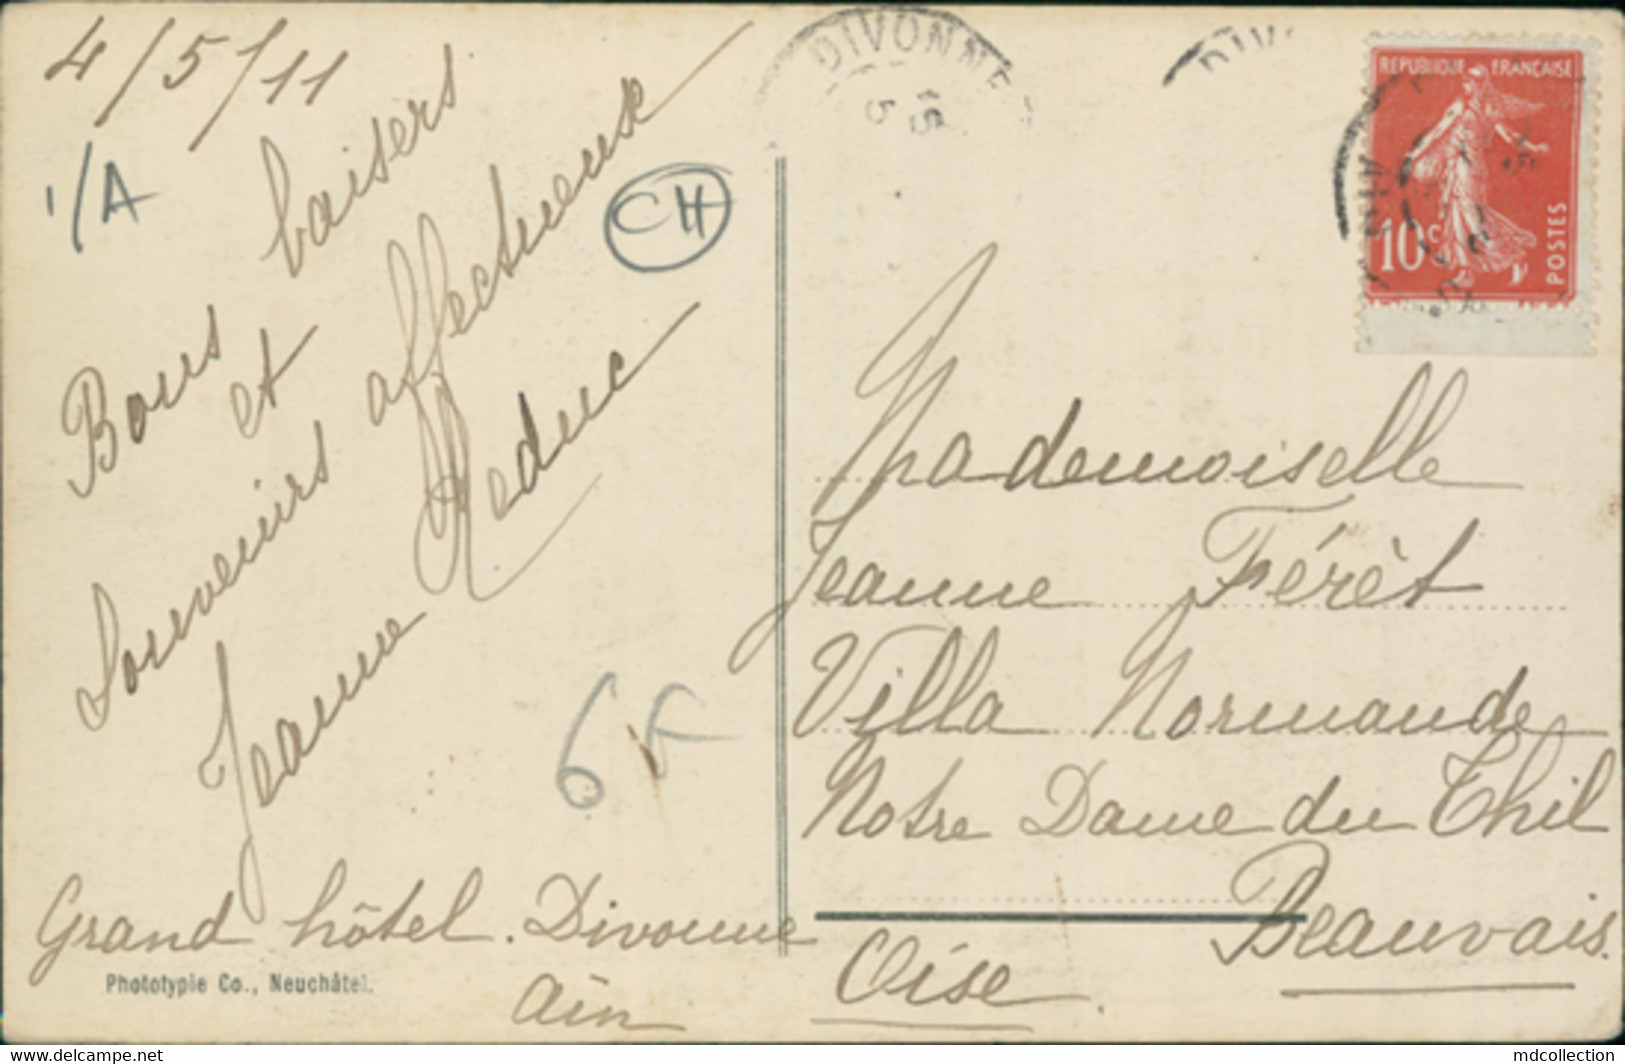 4/5/11
1/A
Bons baisers
et
Souvenirs affectueux
Jeanne Leduc
CH
6F
Grand hôtel. Divonne
Ain
Phototypie Co., Neuchâtel.
DIVONNE
15
5
DIV
REPUBLIQUE FRANÇAISE
10c
POSTES
AIN
Mademoiselle
Jeanne Férèt
Villa Normande
Notre Dame du Thil
Beauvais.
Oise.
https://www.delcampe.net
mdcollection